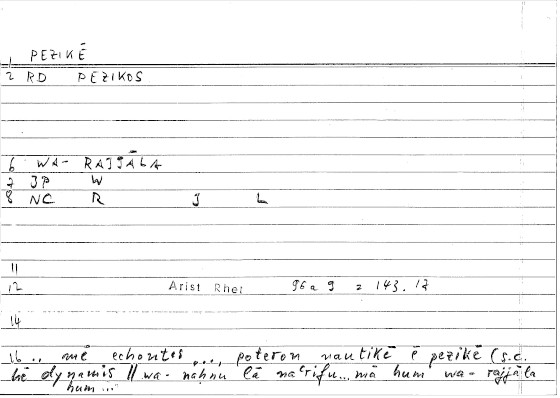 1 PEZIKĒ
2 RD PEZIKOS
6 WA- RAJJĀLA
7 JP W
8 NC R J L
11
12 Arist Rhet 96a9 = 143.17
14
16 .. mē echontes ..., poteron nautikē ē pezikē (s.c.
hē dynamis // wa- naḥnu lā naʿrifu... mā hum wa- rajjāla
hum ...